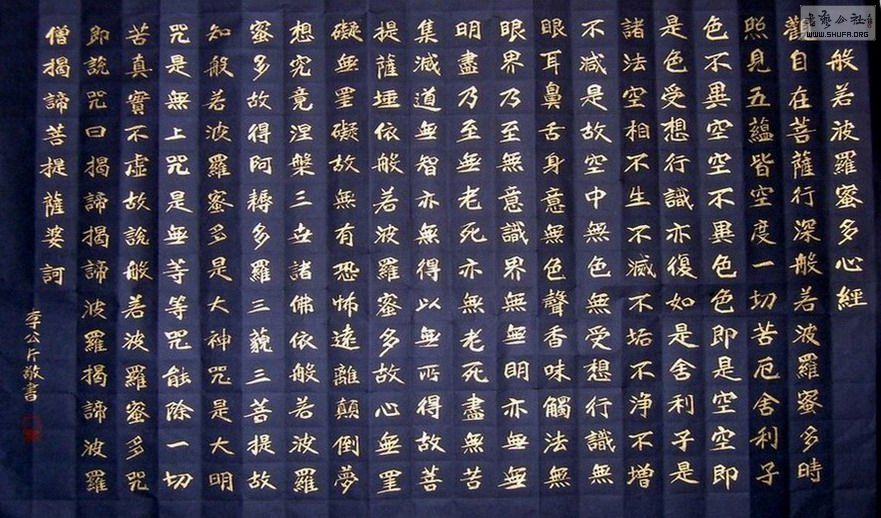 般若波羅蜜多心經
觀自在菩薩行深般若波羅蜜多時
照見五蘊皆空度一切苦厄舍利子
色不異空空不異色色即是空空即
是色受想行識亦復如是舍利子是
諸法空相不生不滅不垢不淨不增
不減是故空中無色無受想行識無
眼耳鼻舌身意無色聲香味觸法無
眼界乃至無意識界無無明亦無無
明盡乃至無老死亦無老死盡無苦
集滅道無智亦無得以無所得故菩
提薩埵依般若波羅蜜多故心無罣
礙無罣礙故無有恐怖遠離顛倒夢
想究竟涅槃三世諸佛依般若波羅
蜜多故得阿耨多羅三藐三菩提故
知般若波羅蜜多是大神咒是大明
咒是無上咒是無等等咒能除一切
苦真實不虛故說般若波羅蜜多咒
即說咒曰揭諦揭諦波羅揭諦波羅
僧揭諦菩提薩婆訶
李公片敬書
書藝公社
WWW.SHUFA.ORG